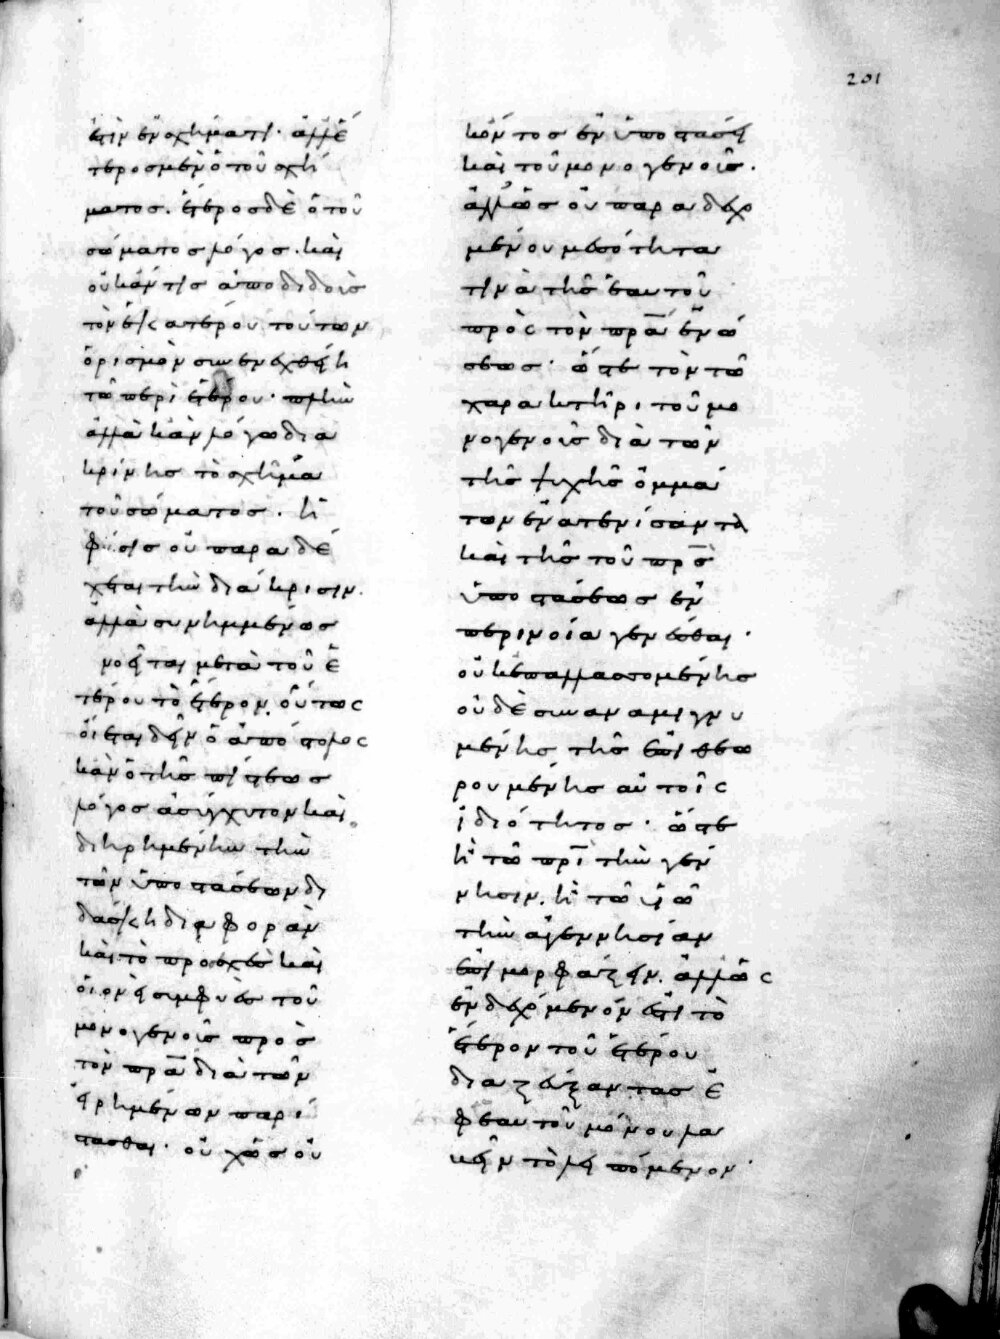 201
ἐστὶν ἐν σχήματι· ἀλλ' ἕ
τερος μὲν ὁ τοῦ σχή
ματος. ἕτερος δὲ ὁ τοῦ
σώματος λόγος. καὶ
οὐκ ἄν τις ἀποδιδοὺς
τὸν ἑκατέρου τούτων
ὁρισμὸν συνενεχθείη
τῶ περὶ ἑτέρου· πλὴν
ἀλλὰ κἂν λόγω δια
κρίνης τὸ σχῆμα
τοῦ σώματος. ἡ
φύσις οὐ παραδέ
χεται τὴν διάκρισιν.
ἀλλὰ συνημμένως
νοεῖται μετὰ τοῦ ἑ
τέρου τὸ ἕτερον. οὕτως
οἴεται δεῖν ὁ ἀπόστολος
κἂν ὁ τῆς πίστεως
λόγος ἀσύγχυτον καὶ
διηρημένην τὴν
τῶν ὑποστάσεων δι
δάσκη διαφορὰν
καὶ τὸ προσεχὲς καὶ
οἱονεὶ συμφυὲς τοῦ
μονογενοῦς πρὸς
τὸν πρα διὰ τῶν
εἰρημένων παρί
στασθαι· οὐχ ὡς οὐ
κ ὄντος ἐν ὑποστάσει
καὶ τοῦ μονογενοῦς.
ἀλλ' ὡς οὐ παραδεχο
μένου μεσότητα
τινὰ τῆς ἑαυτοῦ
πρὸς τὸν πρα ἑνώ
σεως· ὥστε τὸν τῶ
χαρακτῆρι τοῦ μο
νογενοῦς διὰ τῶν
τῆς ψυχῆς ὀμμά
των ἐνατενίσαντα
καὶ τῆς τοῦ πρς
ὑποστάσεως ἐν
περινοία γενέσθαι·
οὐκ ἐπαλλασσομένης
οὐδὲ συναναμιγνυ
μένης τῆς ἐπιθεω
ρουμένης αὐτοῖς
ἰδιότητος· ὥστε
ἢ τῶ πρι τὴν γέν
νησιν. ἢ τῶ υἱῶ
τὴν ἀγεννησίαν
ἐπιμορφάζειν. ἀλλ' ὡς
ἐνδεχόμενον ἐστι τὸ
ἕτερον τοῦ ἑτέρου
διαζεύξαντας ἐ
φ' ἑαυτοῦ μόνου λα
βεῖν τὸ λειπόμενον·